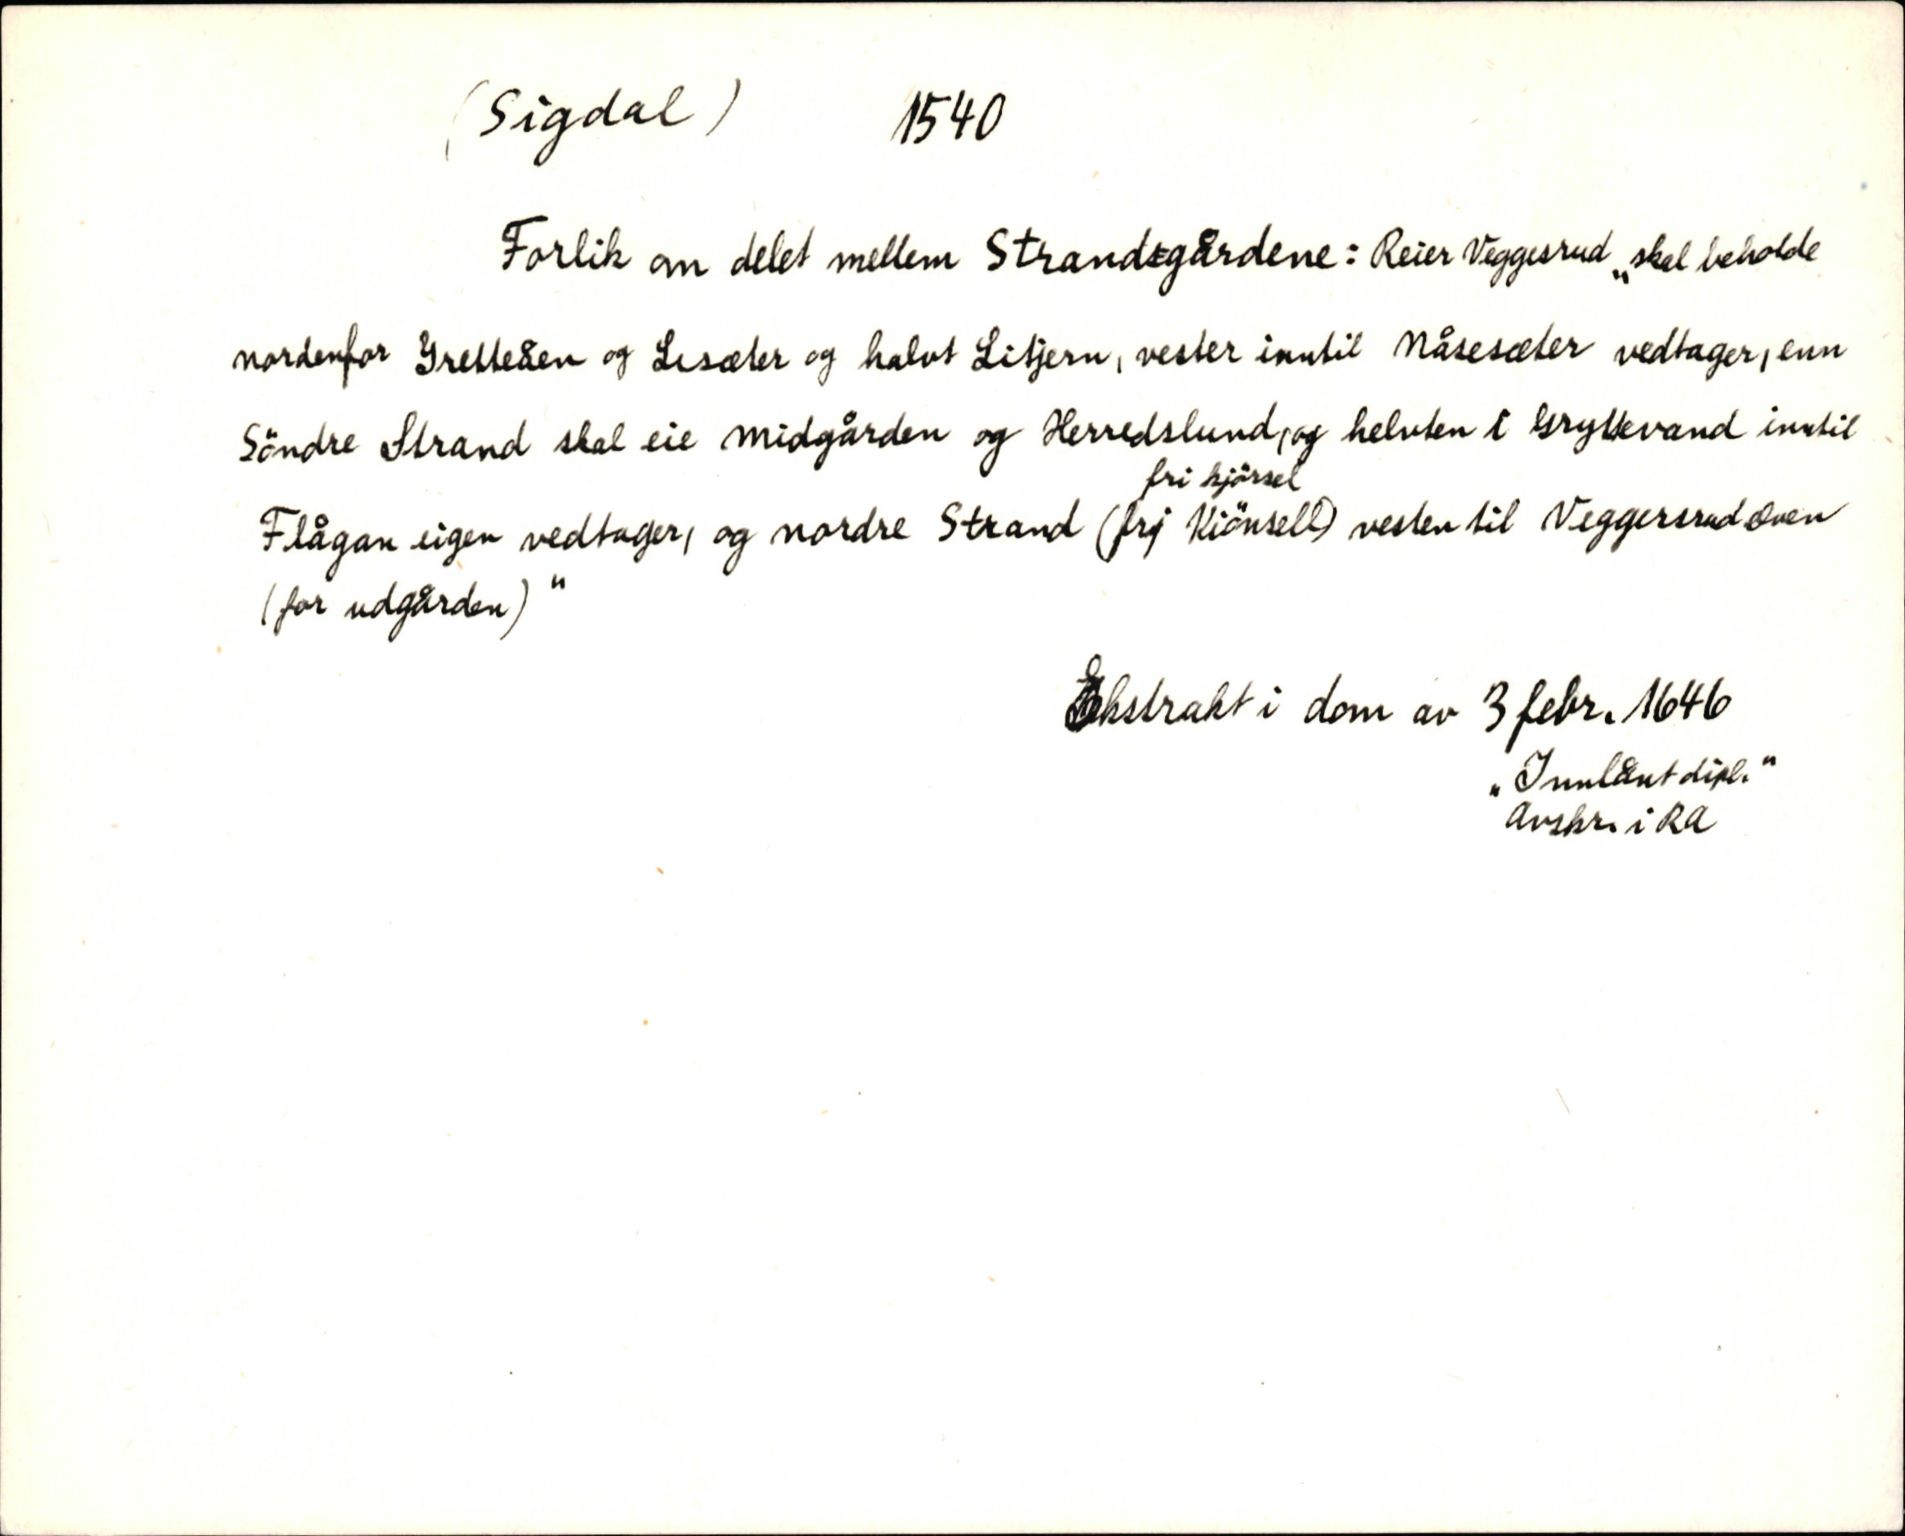 (Sigdal) 1540
Forlik om delet mellem Strandsgårdene: Reier Veggesrud „skal beholde
nordenfor Gretteåen og Lisæter og halvt Litjern, vester inntil Nåsesæter vedtager, enn
Söndre Strand skal eie Midgården og Herredslund, og helvten i Gryttevand inntil
fri kjörsel
Flågan eigen vedtager, og nordre Strand (frj Kiönsell) vesten til Veggersrud
(for udgården)"
Ekstrakt i dom av 3 febr. 1646
„Innlånt dipl."
Avskr. i RA